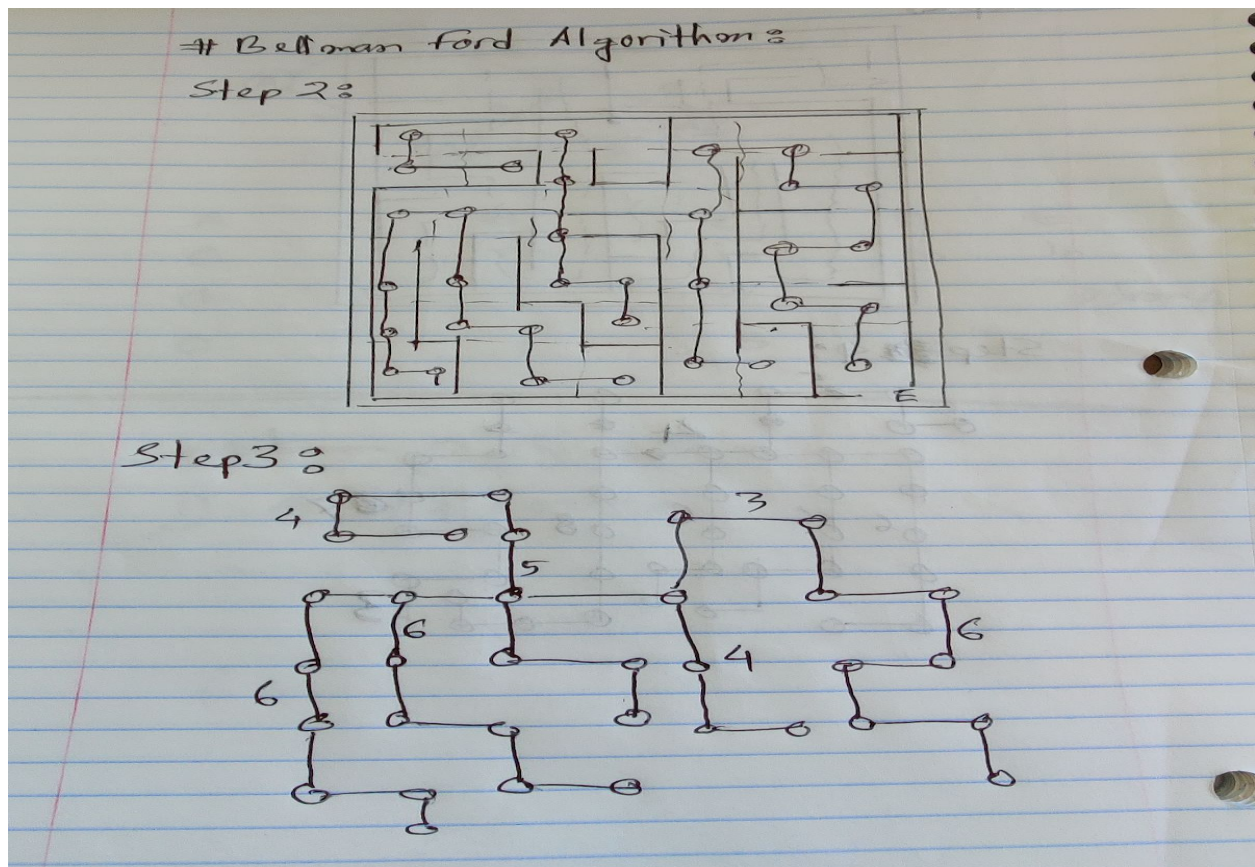 # Bellman Ford Algorithom:
Step 2:
E
Step 3:
3
4
5
6
4
6
6